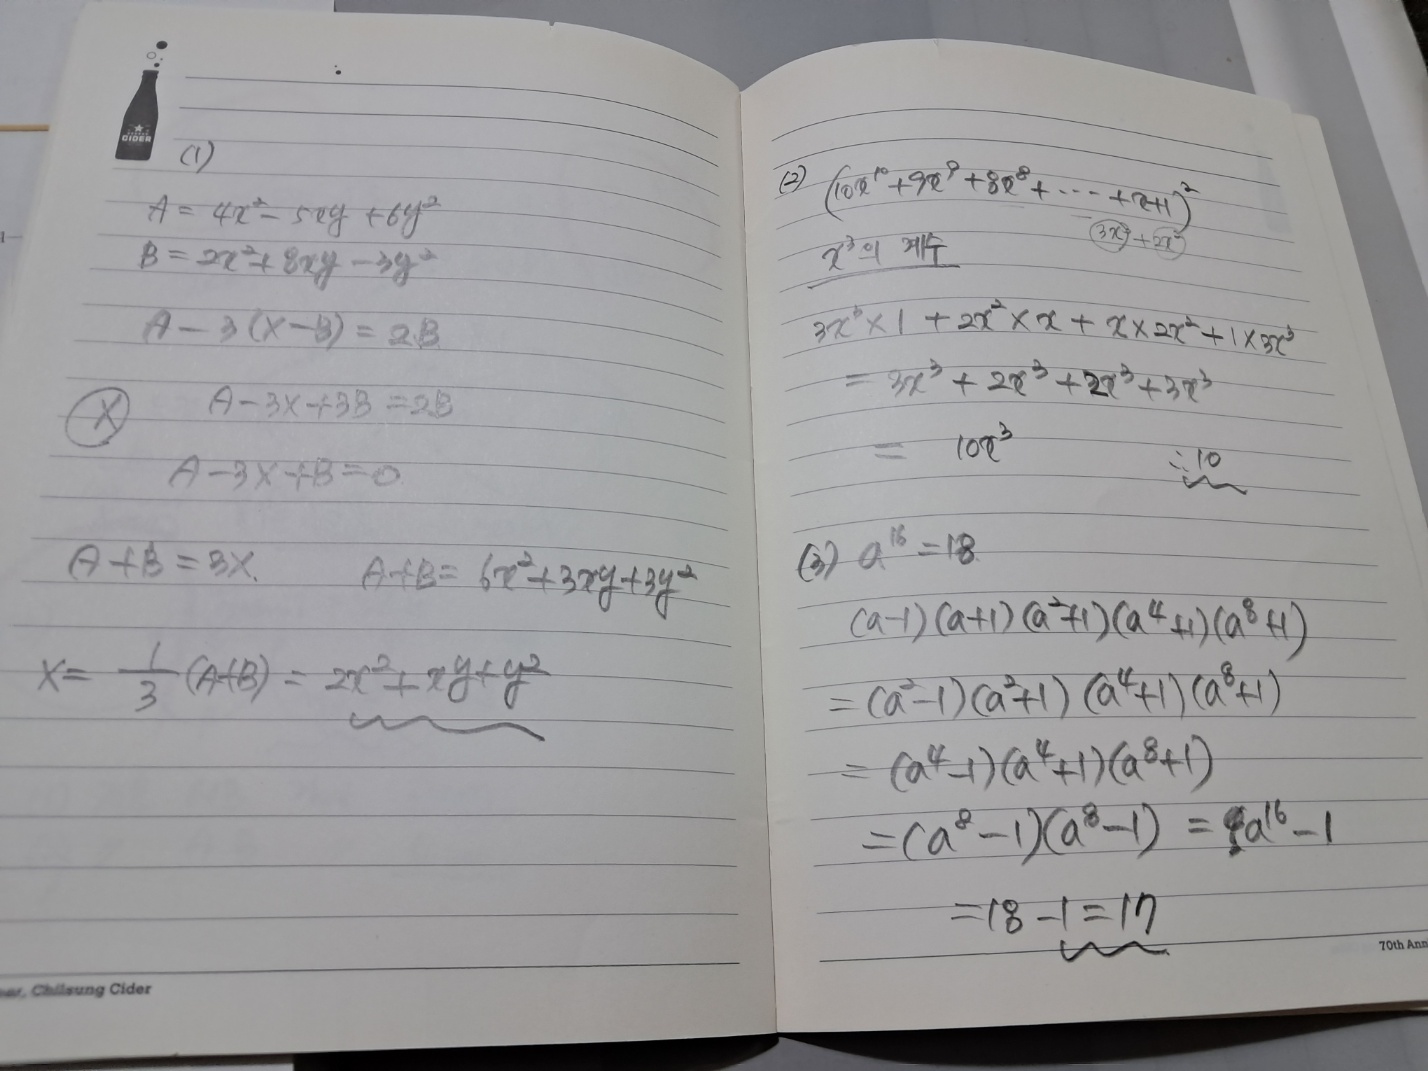 CIDER
(1)
A = 4x² - 5xy + 6y²
B = 2x² + 8xy - 3y²
A - 3(X - B) = 2B
A - 3X + 3B = 2B
X
A - 3X + B = 0
A + B = 3X. A + B = 6x² + 3xy + 3y²
X = 1/3 (A+B) = 2x² + xy + y²
Chilsung Cider
(2) (10x¹⁰ + 9x⁹ + 8x⁸ + ... + x + 1)²
3x³ + 2x²
x³의 계수
3x³ × 1 + 2x² × x + x × 2x² + 1 × 3x³
= 3x³ + 2x³ + 2x³ + 3x³
= 10x³ ∴ 10
(3) a¹⁶ = 18
(a-1)(a+1)(a²+1)(a⁴+1)(a⁸+1)
= (a²-1)(a²+1)(a⁴+1)(a⁸+1)
= (a⁴-1)(a⁴+1)(a⁸+1)
= (a⁸-1)(a⁸-1) = a¹⁶ - 1
= 18 - 1 = 17
70th